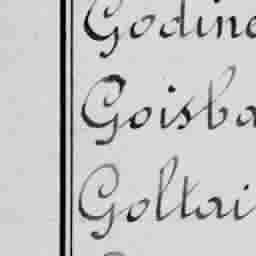 Godine
Goisba
Goltai